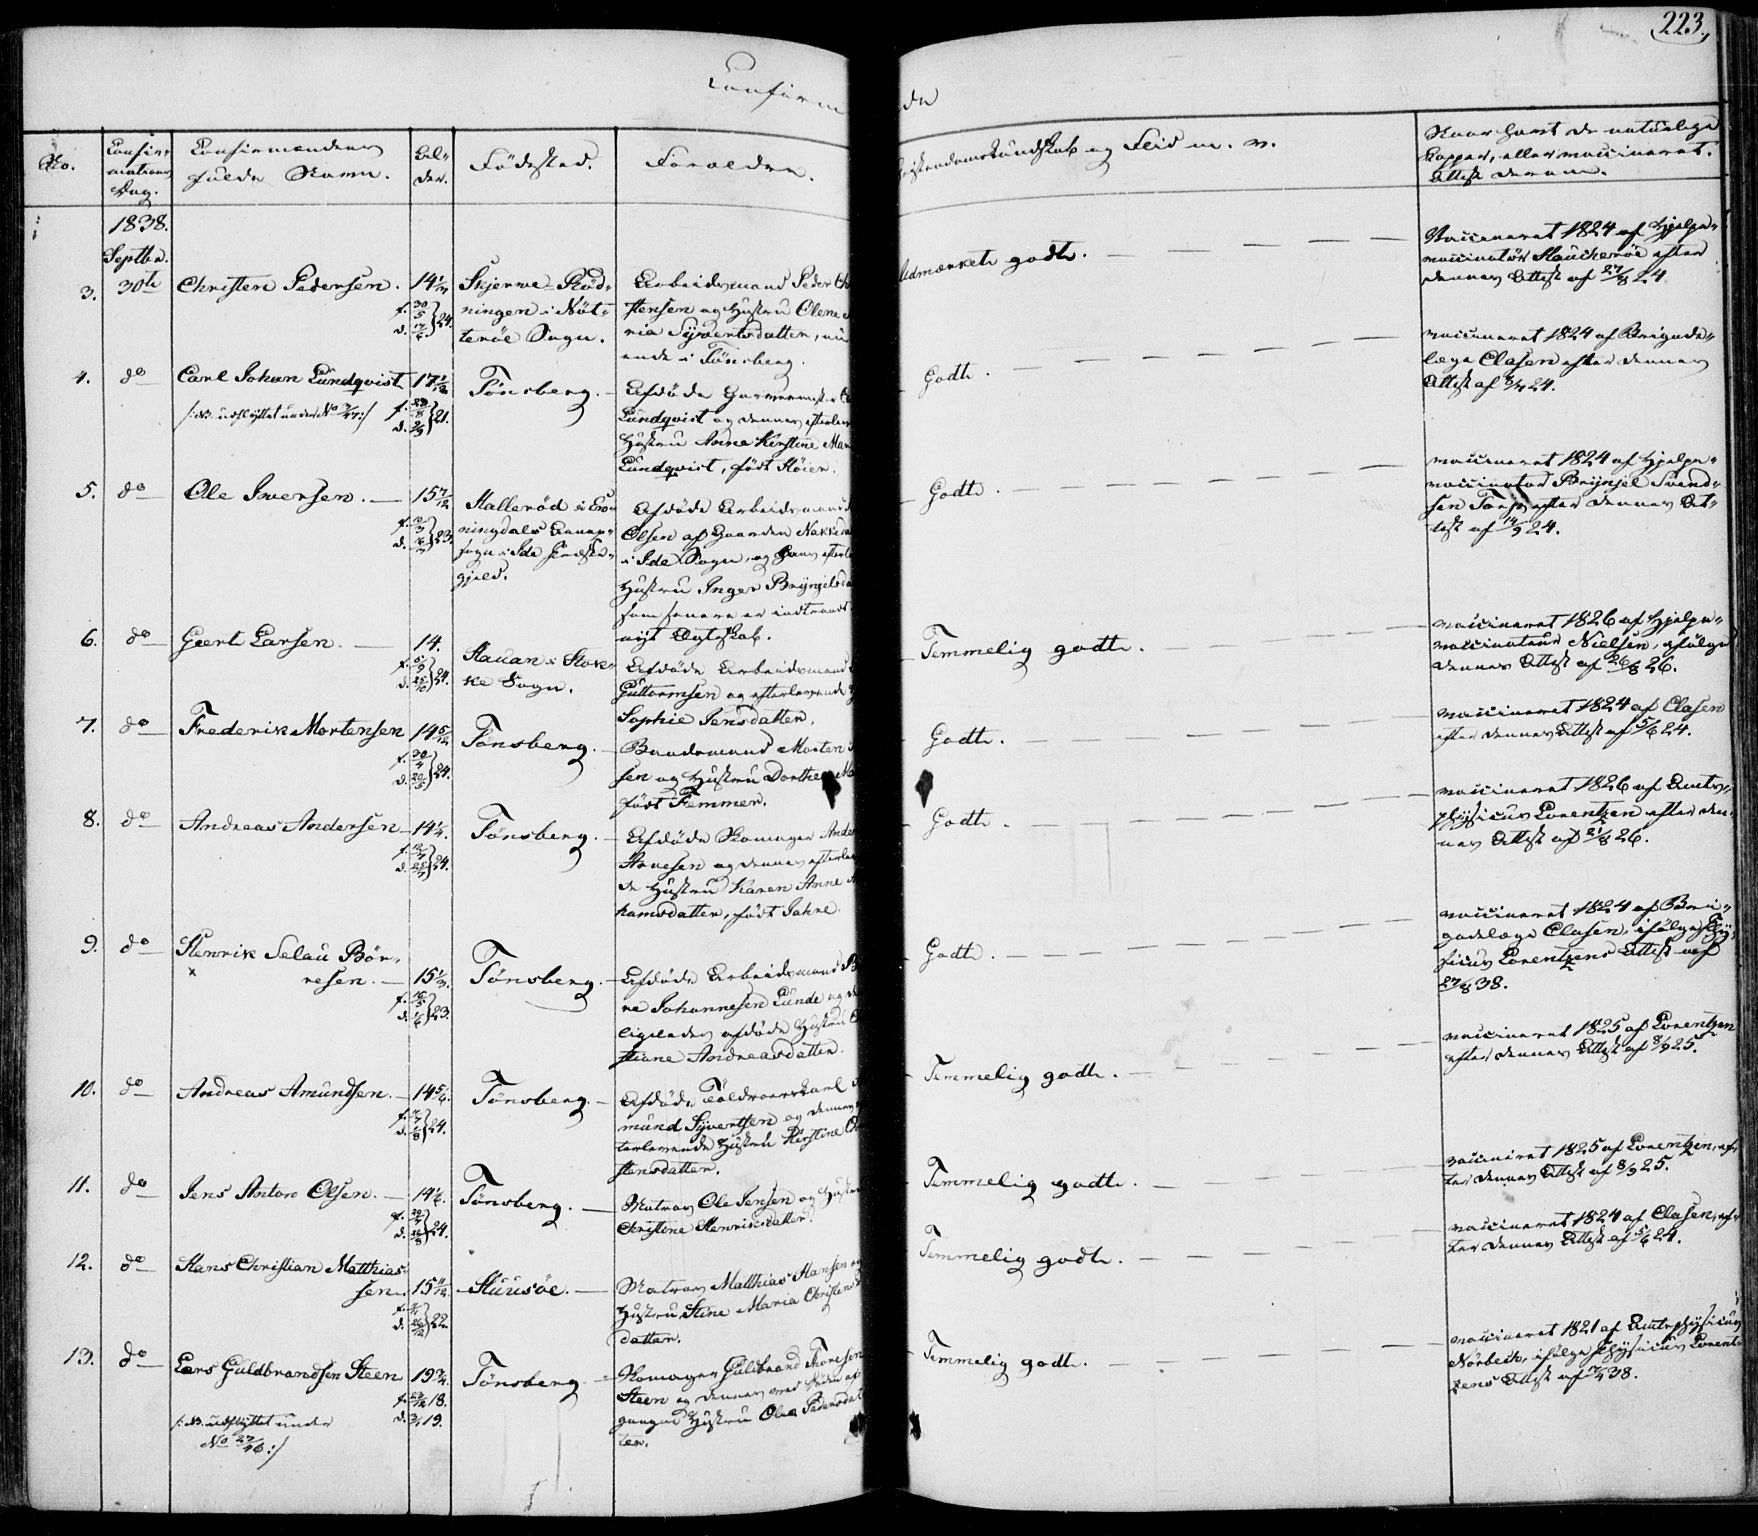 223.
Confirm
ede
No.
Confir-
mations
Dag.
Confirmandens
fulde Navn.
Al-
der.
Födested.
Forældre.
Kundskab og Flid m. v.
Naar havt de naturlige
Kopper, eller vaccineret.
Attest derom.
1838.
Septbr.
3. 30te Christen Pedersen. 14 1/3
Skjerve-Röd-
ningen i Nöt-
teröe Sogn.
Arbeidsmand Peder Ch
stensen og Hustru Olene
ria Syvertsdatter,
ende i Tönsberg.
Udmærket godt.
Vaccineret 1824 af Hjelpe-
vaccinatör Haucheröe efter
dennes Attest af 27/8 24.
4. do Carl Johan Lundqvist 17 1/12
/: NB. udflyttet under No
Tönsberg.
Afdöde Garvermester C
Lundqvist og dennes efterlev
Hustru Anne Kirstine Mar
Lundqvist, födt Höier.
Godt.
vaccineret 1824 af Brigade-
læge Clasen efter dennes
Attest af 24.
5. do Ole Iversen. 15 7/12
Halleröd i
ningdals Annex-
sogn i Ide Præste-
gjeld.
Afdöde Arbeidsmand
Olsen af Gaarden
i Ide Sogn, og hans efterle
Hustru Inger Bryngels
som senere er indtraadt
nyt Ægteskab.
Godt.
vaccineret 1824 af Hjelpe-
vaccinatör Brynjel Svend-
sen Torp, efter dennes At-
test af 14/9 24.
6. do Geert Larsen. 14.
Hauan i Stok-
ke Sogn.
Afdöde Arbeidsmand
Guttormsen og efterlevende
Sophie Jensdatter.
Temmelig godt.
vaccineret 1826 af Hjelpe-
vaccinateur Nielsen, ifölge
dennes Attest af 26/8 26.
7. do Frederik Mortensen 14 5/12
Tönsberg.
Baadsmand Morten
sen og Hustru Dorthea Ma
födt Femmer.
Godt.
vaccineret 1824 af Clasen
efter dennes Attest af 5/6 24.
8. do Andreas Andersen 14 1/4.
Tönsberg.
Afdöde Skomager Ander
Hovesen og dennes efterleven
de Hustru Karen Anne
hamsdatter, födt Jahre.
Godt.
vaccineret 1826 af Amts-
physicus Lorentzen efter den-
nes Attest af 21/8 26.
9. do Henrik Selau Bör-
resen. 15 1/3.
Tönsberg.
Afdöde Arbeidsmand B
re Johannesen Lunde og
ligeledes afdöde Hustru
stiane Andreasdatter.
Godt.
vaccineret 1824 af Bri-
gadelæge Clasen, ifölge Phy-
sicus Lorentzens Attest af
27/8 38.
10. do Andreas Amundsen. 14 5/6.
Tönsberg.
Afdöde Toldroerskarl
mund Syvertsen og dennes
terlevende Hustru Kirstine
stensdatter.
Temmelig godt.
vaccineret 1825 af Lorentzen
efter dennes Attest af 8/9 25.
11. do Jens Anton Olsen. 14 1/6.
Tönsberg.
Matros Ole Jensen og Hustru
Christine Henriksdatter.
Temmelig godt.
vaccineret 1825 af Lorentzen, ef-
ter dennes Attest af 8/9 25.
12. do Hans Christian Matthias-
sen. 15 11/12.
Huusöe.
Matros Matthias Hansen og
Hustru Stine Maria Christens
datter.
Temmelig godt.
vaccineret 1824 af Clasen, ef-
ter dennes Attest af 5/6 24.
13. do Lars Guldbrandsen Steen 19 3/4.
/: NB. udflyttet under
No 27/46 :/
Tönsberg.
Skomager Guldbrand Thoresen
Steen og dennes ved Döden af-
gangne Hustru Olea Pedersdat
ter.
Temmelig godt.
vaccineret 1821 af Amtsphysicus
Norbeck, ifölge Physicus Lorent-
zens Attest af 38.